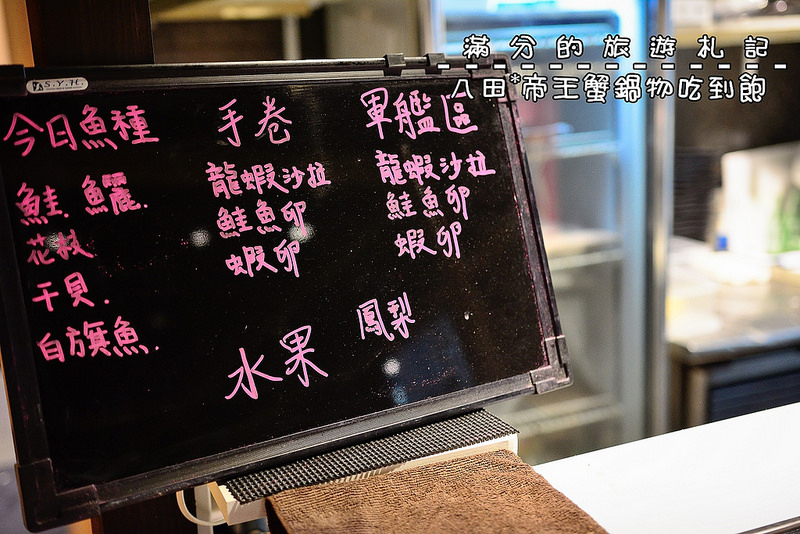 滿分的旅遊札記
八田*帝王蟹鍋物吃到飽
S.Y.H.
今日魚種
鮭. 鱺.
花枝
干貝.
白旗魚.
手卷
龍蝦沙拉
鮭魚卵
蝦卵
軍艦區
龍蝦沙拉
鮭魚卵
蝦卵
水果
鳳梨